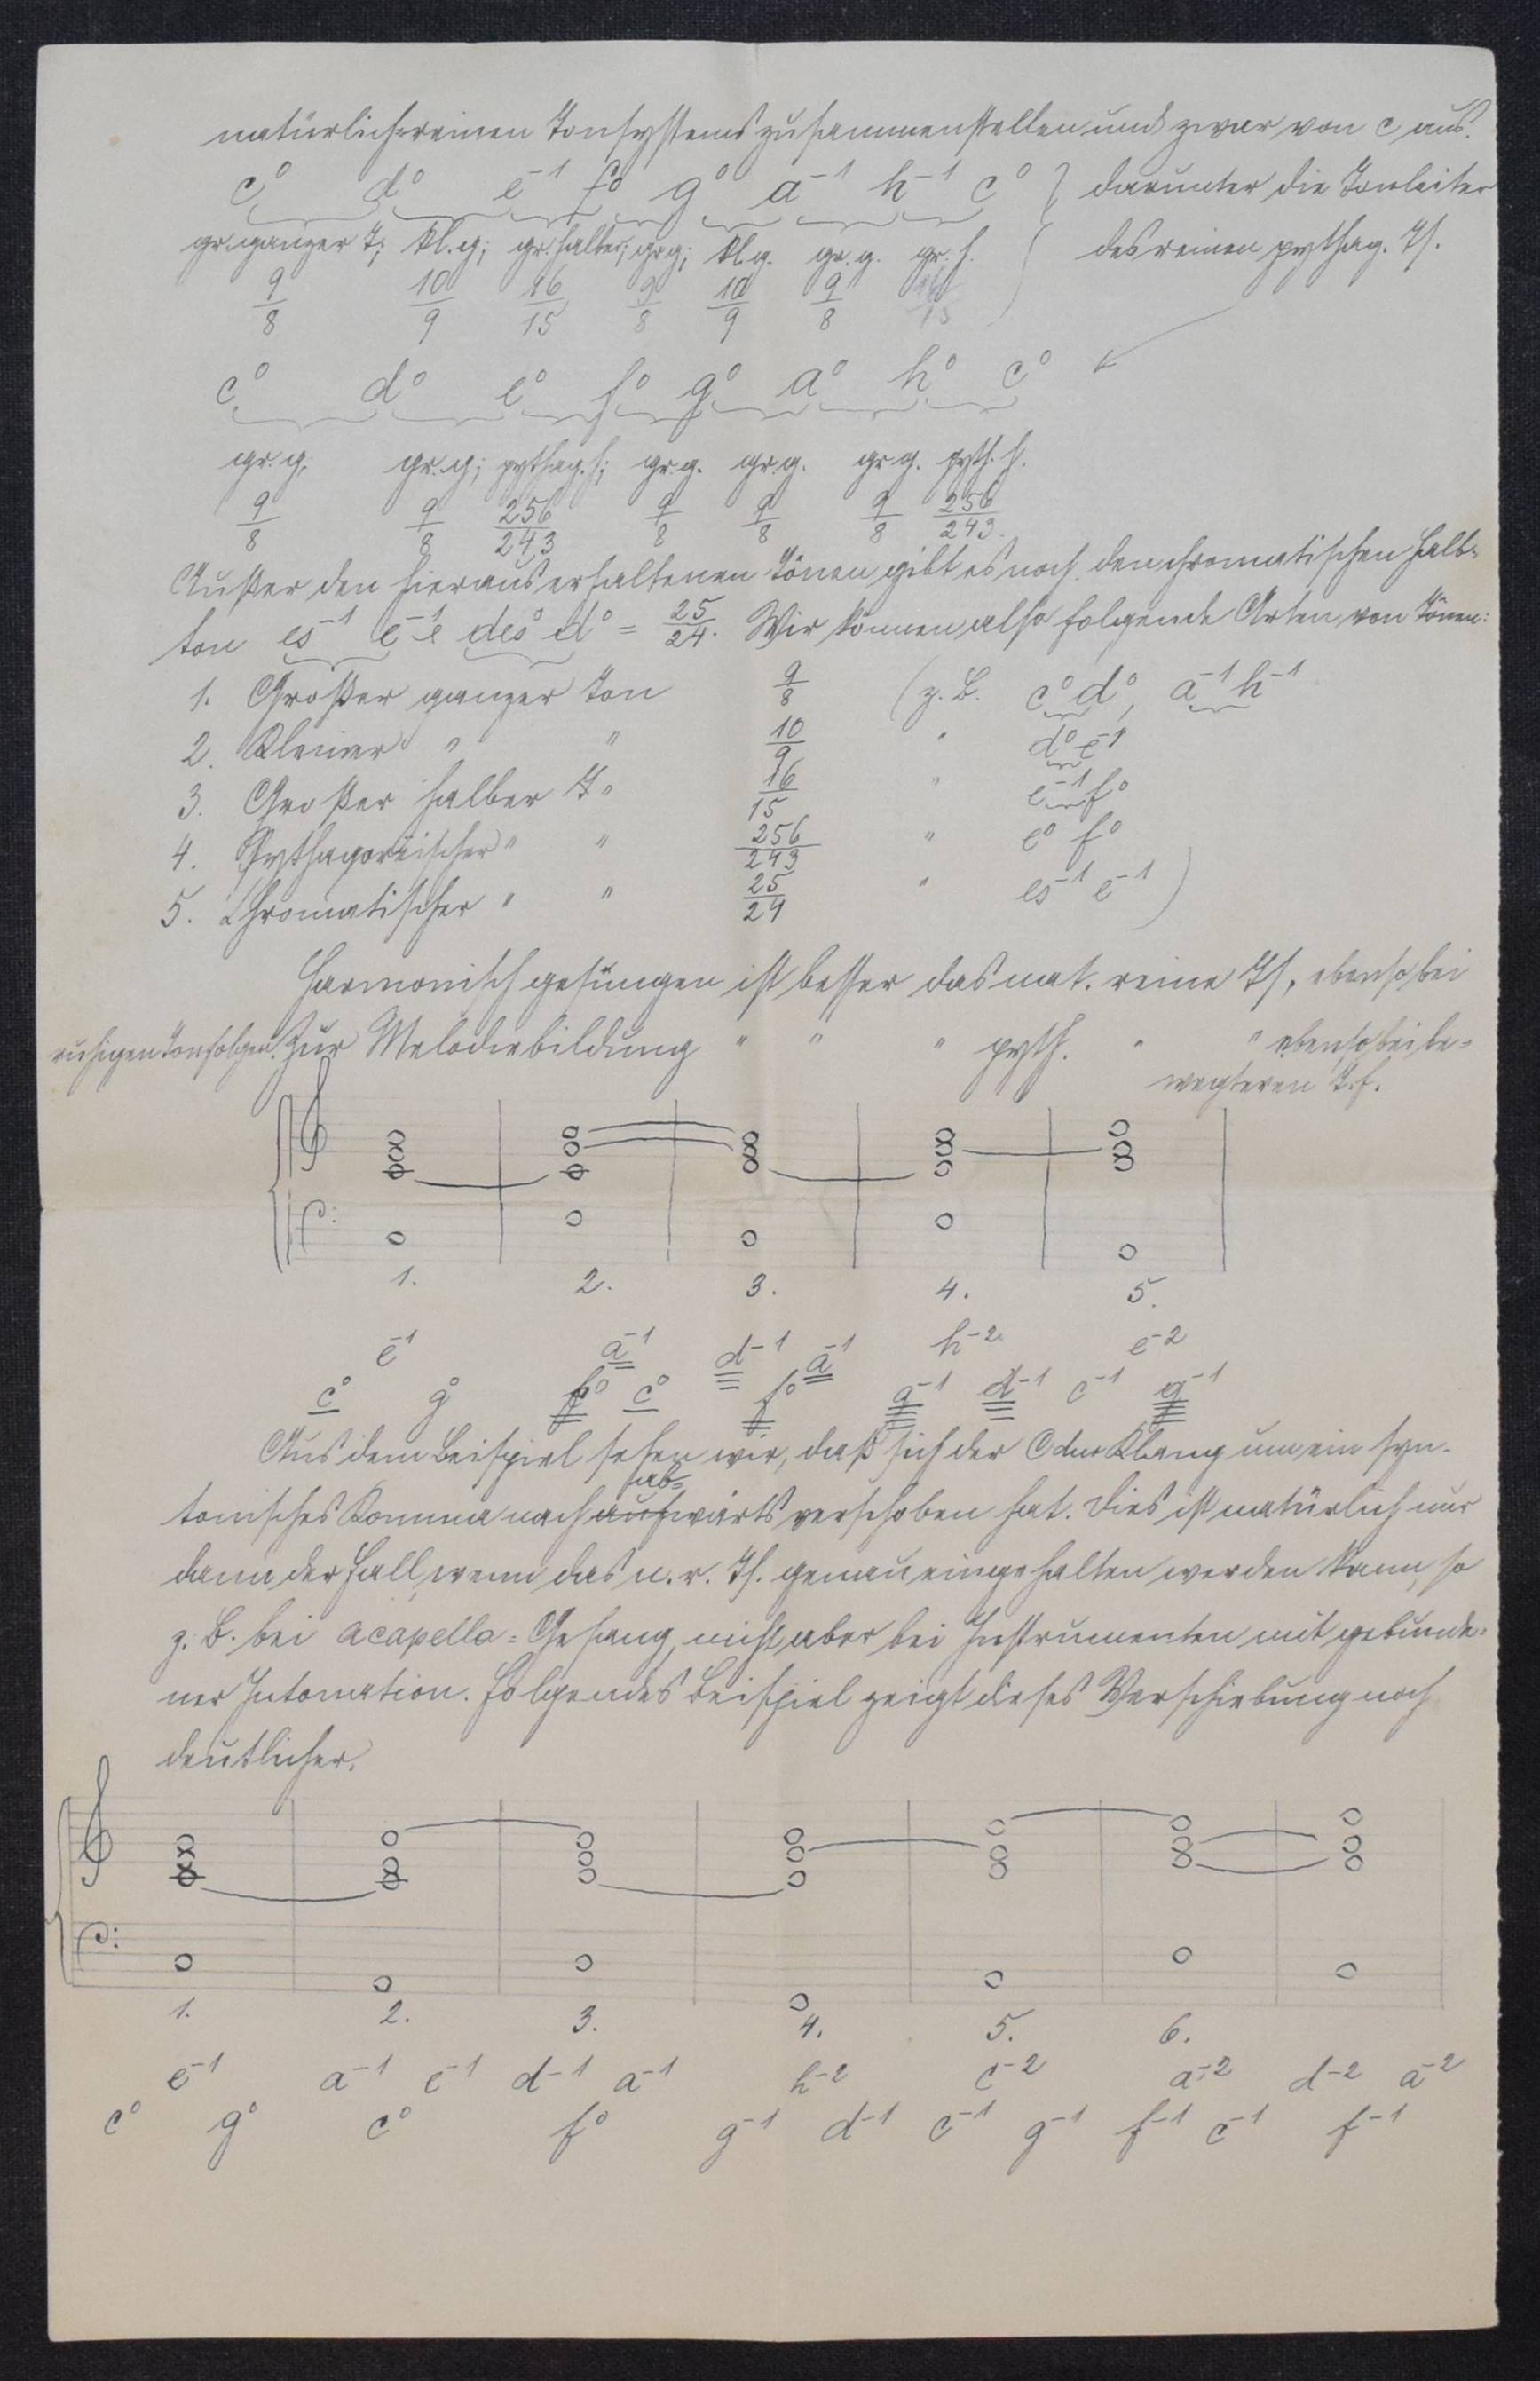 natürlich-reinen Tonsystems zusammenstellen und zwar von c aus.
c⁰ d⁰ e⁻¹ f⁰ g⁰ a⁻¹ h⁻¹ c⁰ } darunter die Tonleiter
gr. ganzer T; kl. g; gr. halber; gr g; kl g. gr. g. gr. h. des reinen pythag. Ts.
9/8 10/9 16/15 9/8 10/9 9/8 16/15
c⁰ d⁰ e⁰ f⁰ g⁰ a⁰ h⁰ c⁰
gr. g; gr. g; pythag. h; gr. g. gr. g. gr g. pyth. h.
9/8 9/8 256/243 9/8 9/8 9/8 256/243.
Außer den hieraus erhaltenen Tönen gibt es noch den chromatischen Halb-
ton es⁻¹ e⁻¹ des⁰ d⁰ = 25/24. Wir können also folgende Arten von Tönen:
1. Großer ganzer Ton 9/8 (z. B. c⁰ d⁰, a⁻¹ h⁻¹
2. Kleiner " " 10/9 " d⁰ e⁻¹
3. Großer halber T. 16/15 " e⁻¹ f⁰
4. Pythagoräischer " " 256/243 " e⁰ f⁰
5. Chromatischer " " 25/24 " es⁻¹ e⁻¹ )
Harmonisch gesungen ist besser das nat. reine Ts, ebenso bei
ruhigen Tonfolgen. Zur Melodiebildung " " " pyth. " " ebenso bei be-
wegteren T. f.
1. 2. 3. 4. 5.
e⁻¹ a⁻¹ d⁻¹ a⁻¹ h⁻² e⁻²
c⁰ g⁰ f⁰ c⁰ f⁰ g⁻¹ d⁻¹ c⁻¹ g⁻¹
Aus dem Beispiel sehen wir, daß sich der C dur Klang um ein syn-
ab-
tonisches Komma nach aufwärts verschoben hat. Dies ist natürlich nur
dann der Fall, wenn das n. r. Ts. genau eingehalten werden kann, so
z. B. bei acapella-Gesang, nicht aber bei Instrumenten mit gebunde-
ner Intonation. Folgendes Beispiel zeigt dieses Verschiebung noch
deutlicher.
1. 2. 3. 4. 5. 6.
e⁻¹ a⁻¹ e⁻¹ d⁻¹ a⁻¹ h⁻² e⁻² a⁻² d⁻² a⁻²
c⁰ g⁰ c⁰ f⁰ g⁻¹ d⁻¹ c⁻¹ g⁻¹ f⁻¹ c⁻¹ f⁻¹